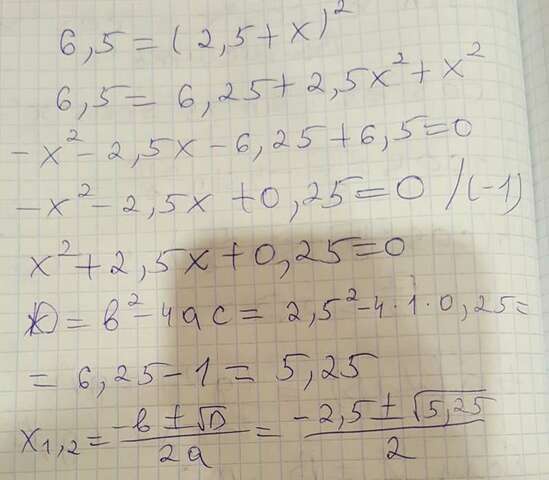 6,5 = (2,5 + x)²
6,5 = 6,25 + 2,5x² + x²
-x² - 2,5x - 6,25 + 6,5 = 0
-x² - 2,5x + 0,25 = 0 /(-1)
x² + 2,5x + 0,25 = 0
D = b² - 4ac = 2,5² - 4·1·0,25 =
= 6,25 - 1 = 5,25
x₁,₂ = (-b ± √D)/(2a) = (-2,5 ± √5,25)/2